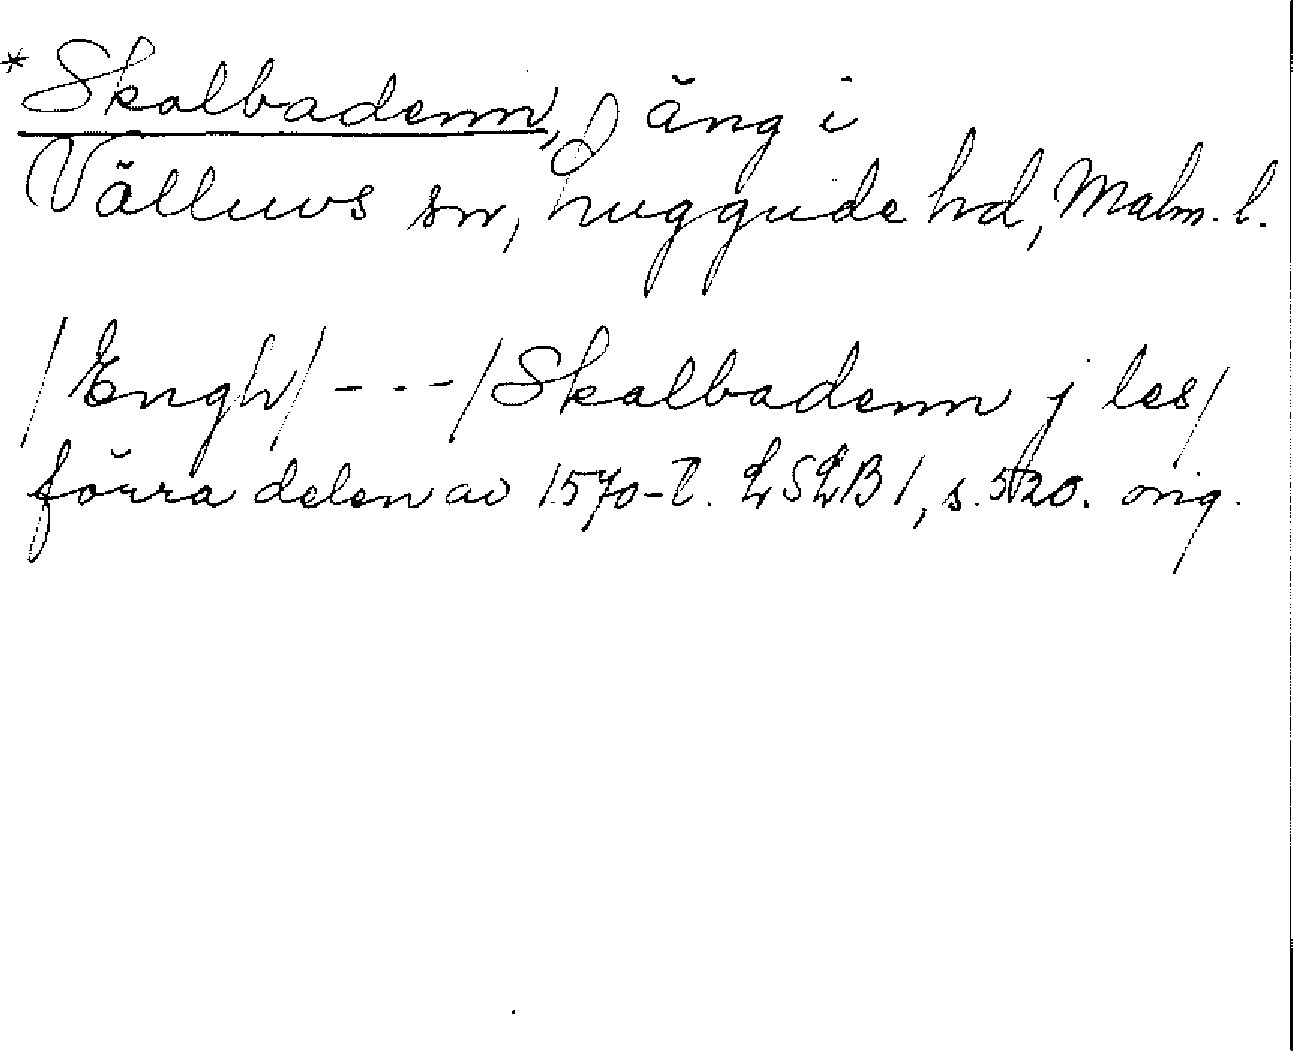 *Skalbadenn, äng i
Välluvs sn, Luggude hd, Malm. l.
/Engh/ - - - /Skalbadenn j les/
förra delen av 1570-t. LSLB 1, s. 520. orig.